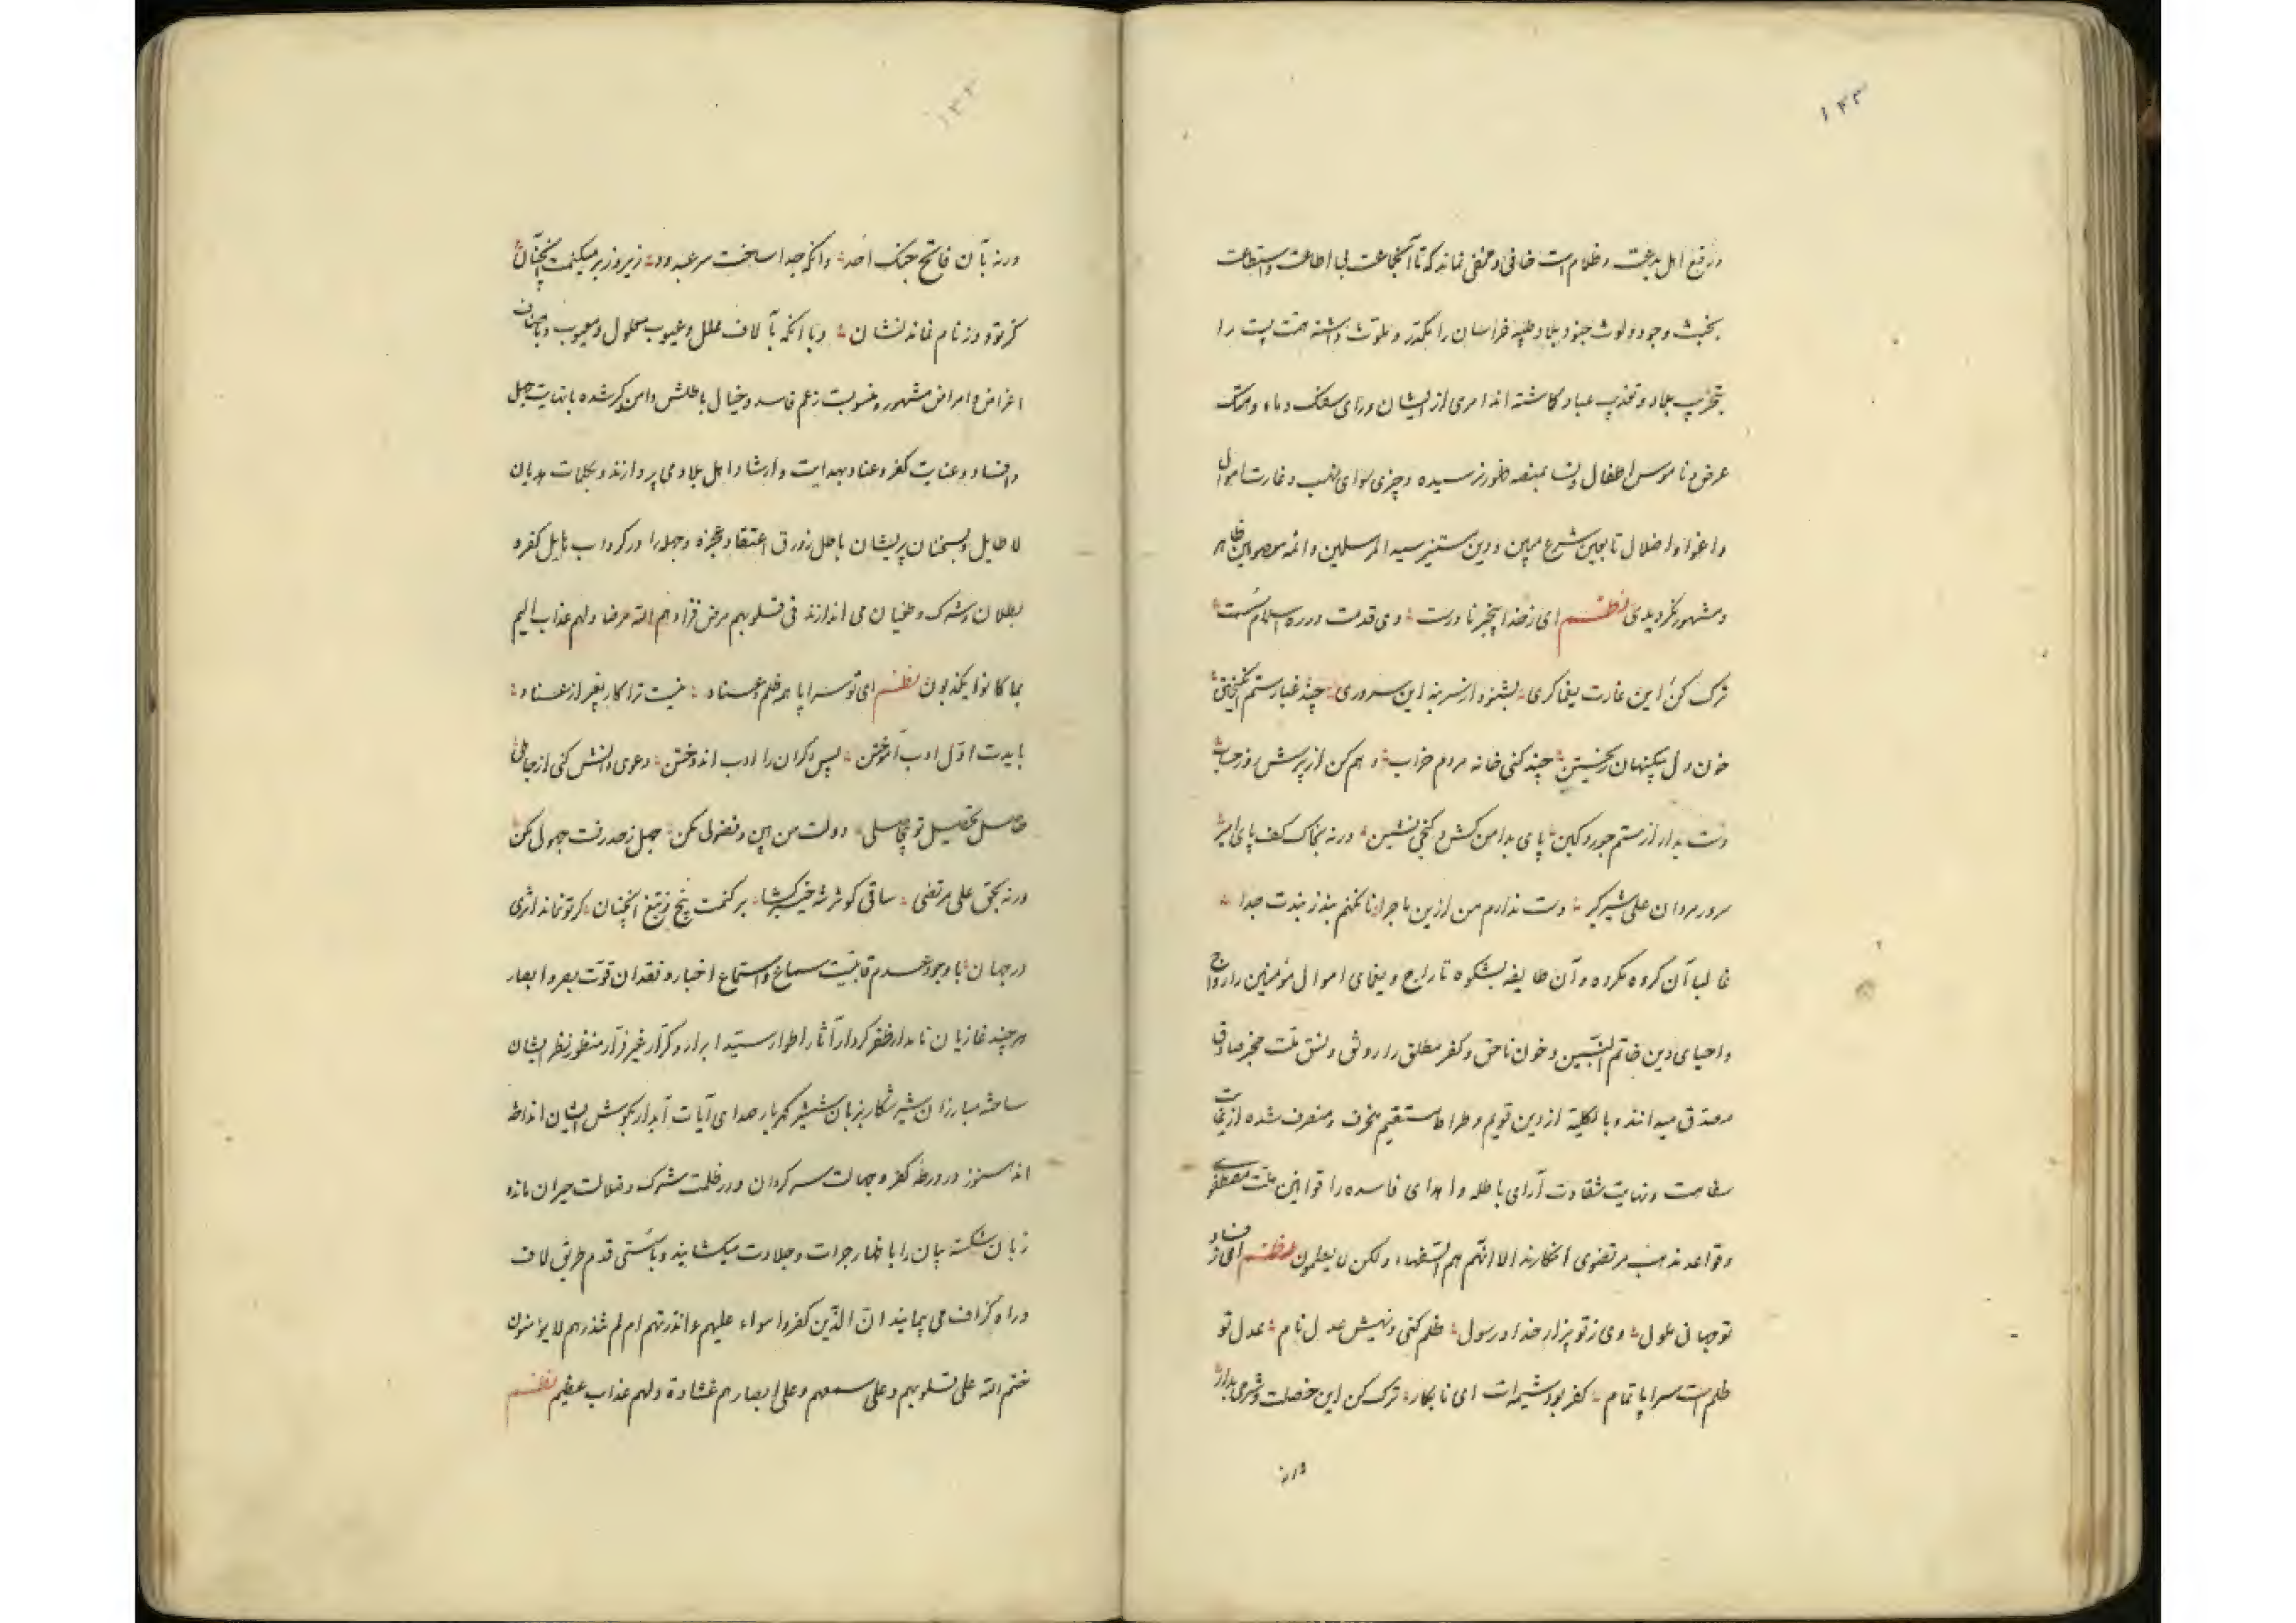 ۱۳۳
و رفع اهل بدعت و ظلام است خافی و مخفی نماند که تا آنجماعت بی اطاعت و استطاعت
بخبث وجود و لوث جنود بلاد طیبه خراسان را مکدر و ملوث داشته همت پست را
بتخریب بلاد و تعذیب عباد کاشته اند امری از ایشان ورای سفک دماء و هتک
عرض و ناموس اطفال و نسا بمنصه ظهور نرسیده و چیزی سوای نهب و غارت اموال
و اغوا و اضلال تابعین شرع مبین و دین مستنیر سید المرسلین و ائمه معصومین ظاهر
و مشهور نگردیده نظم ای ز خدا بیخبر نادرست وی قدمت در ره اسلام سست
ترک کن این غارت یغماکری بشنو و از سر بنه این سروری چند غبار ستم انگیختن
خون دل بیگنهان ریختن چند کنی خانه مردم خراب وهم کن از پرسش روز حساب
دست بدار از ستم جور و کین پای بدامن کش و کنجی نشین ورنه بخاک کف پای امیر
سرور مردان علی شیرگیر دست ندارم من ازین ماجرا تا نکنم بند ز بندت جدا
غالبا آن گروه مکروه و آن طایفه بشکوه تاراج و یغمای اموال مؤمنین را رواج
و احیای دین خاتم النبیین و خون ناحق و کفر مطلق را رونق و نسق ملت مخبر صادق
مصدق میدانند و بالکلیه از دین قویم و صراط مستقیم منحرف و منصرف شده از غایت
سفاهت و نهایت شقاوت آرای باطله و اهدای فاسده را قوانین ملت مصطفوی
و قواعد مذهب مرتضوی انگارند الا انهم هم السفهاء ولکن لا یعلمون نظم ای ز فساد
تو جهانی ملول وی ز تو بیزار خدا و رسول ظلم کنی و نهیش عدل نام عدل تو
ظلم است سراپا تمام کفر بود شیمه‌ات ای نابکار ترک کن این خصلت و شرمی بدار
ورنه
۱۳۴
ورنه بآن فاتح جنگ احد وانکه جدا ساخت سر عبدود زیر و زبر میکنمت آنچنان
کز تو و وز نام نماند نشان و با آنکه بآلاف علل و عیوب معلول و معیوب و باصناف
اغراض و امراض مشهور و منسوبست زعم فاسد و خیال باطلش دامن گیر شده با نهایت جهل
و فساد و عنایت کفر و عناد بهدایت و ارشاد اهل بلاد می پردازند و بکلمات هدیان
لا طایل و بسخنان پریشان باطل زورق اعتقاد عجزه و جهله را در گرداب هایل کفره
بطلان و شرک و طغیان می اندازند فی قلوبهم مرض فزادهم الله مرضا ولهم عذاب الیم
بما کانوا یکذبون نظم ای تو سراپا همه ظلم و عناد نیست ترا کار بغیر از عناد
بایدت اول ادب آموختن پس دگران را ادب اندوختن دعوی دانش کنی از جاهلی
حاصل تحصیل تو بیحاصلی دولت من بین و فضولی مکن جهل ز حد رفت جهولی مکن
ورنه بحق علی مرتضی ساقی کوثر شه خیبرگشا بر کنمت بیخ ز تیغ آنچنان کز تو نماند اثری
در جهان با وجود عدم قابلیت سماع و استماع اخبار و فقدان قوت بصر و ابصار
هر چند غازیان نامدار ظفر کردار آثار اطوار سید ابرار و کرار غیر فرار منظور نظر ایشان
ساخته مبارزان شیر شکار بزبان شمشیر گهربار صدای آیات آبدار بگوش ایشان انداخته
اند هنوز در ورطه کفر و جهالت سرگردان و در ظلمت شرک و ضلالت حیران مانده
زبان شکسته بیان را باظهار جرات و جلادت میکشایند و با سستی قدم طریق لاف
و راه گزاف می پیمایند ان الذین کفروا سواء علیهم ءانذرتهم ام لم تنذرهم لا یؤمنون
ختم الله علی قلوبهم و علی سمعهم و علی ابصارهم غشاوة ولهم عذاب عظیم نظم